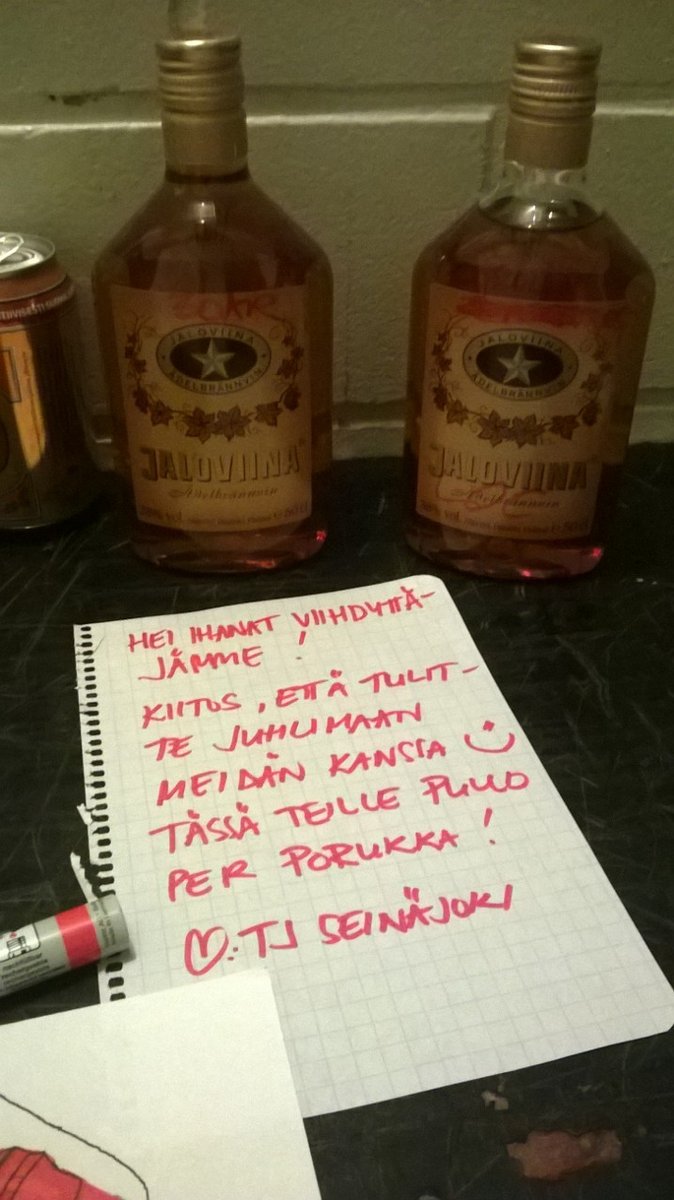 JALOVIINA
ÄDELBRÄNNVIN
JALOVIINA
Ädelbrännvin
JALOVIINA
ÄDELBRÄNNVIN
JALOVIINA
Ädelbrännvin
HEI IHANAT VIIHDYTTÄ-
JÄMME !
KIITOS, ETTÄ TULIT-
TE JUHLIMAAN
MEIDÄN KANSSA
TÄSSÄ TEILLE PULLO
PER PORUKKA!
♡: TJ SEINÄJOKI